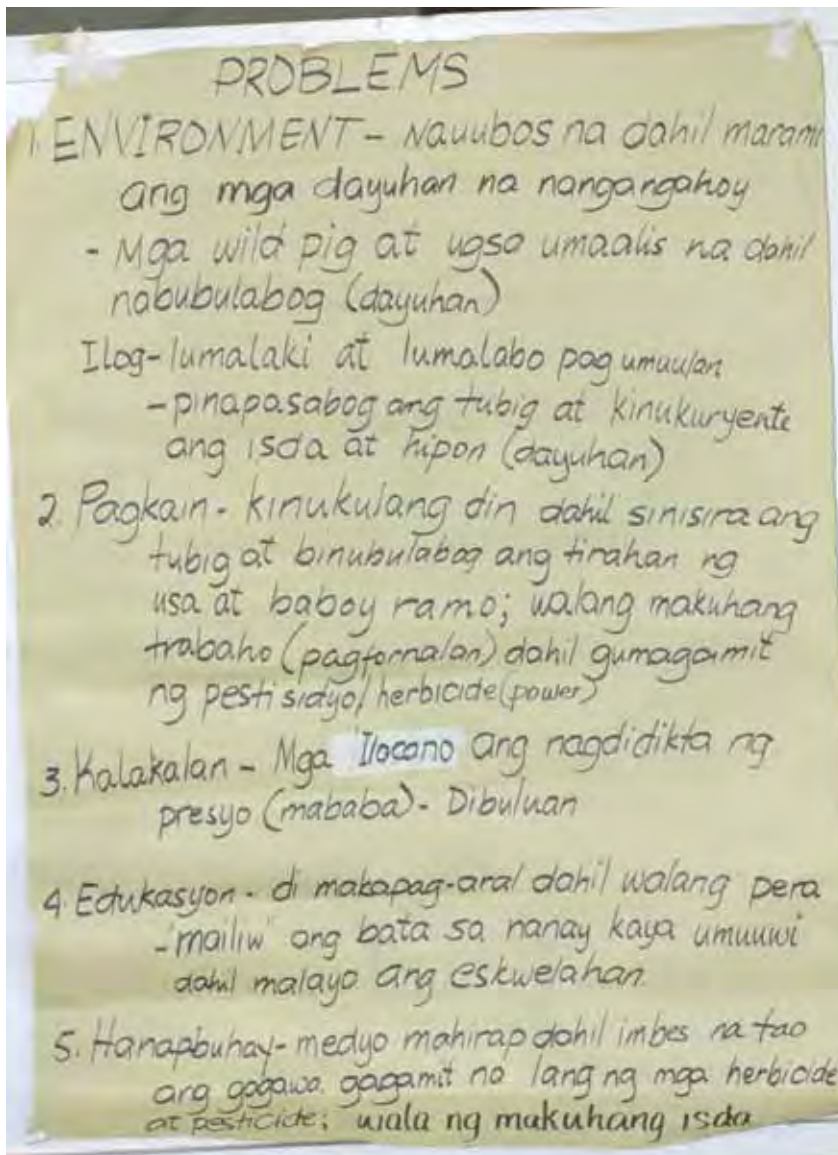 PROBLEMS
1. ENVIRONMENT - Nauubos na dahil marami
ang mga dayuhan na nangangahoy
- Mga wild pig at ugsa umaalis na dahil
nabubulabog (dayuhan)
Ilog - lumalaki at lumalabo pag umuulan
- pinapasabog ang tubig at kinukuryente
ang isda at hipon (dayuhan)
2. Pagkain - kinukulang din dahil sinisira ang
tubig at binubulabog ang tirahan ng
usa at baboy ramo; walang makuhang
trabaho (pagtornalan) dahil gumagamit
ng pestisidyo/herbicide (power)
3. Kalakalan - Mga Ilocano ang nagdidikta ng
presyo (mababa) - Dibuluan
4. Edukasyon - di makapag-aral dahil walang pera
- 'mailiw' ang bata sa nanay kaya umuuwi
dahil malayo ang eskwelahan.
5. Hanapbuhay - medyo mahirap dahil imbes na tao
ang gagawa, gagamit na lang ng mga herbicide
at pesticide; wala ng makuhang isda